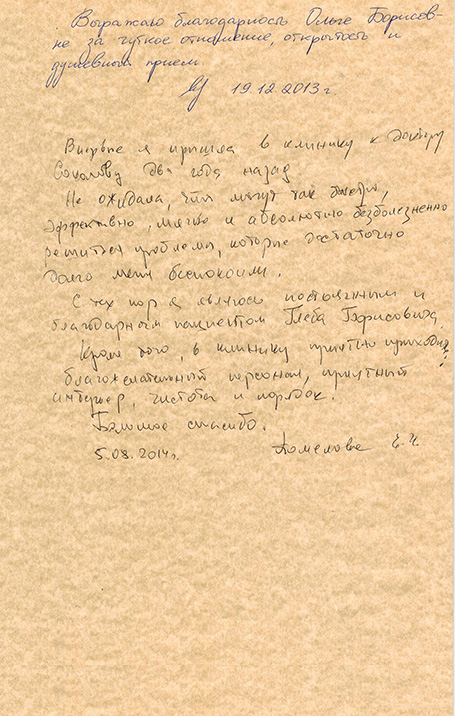 Выражаю благодарность Ольге Борисов-
не за чуткое отношение, открытость и
душевный прием.
19.12.2013 г.
Впервые я пришла в клинику к доктору
Соколову два года назад
Не ожидала, что могут так быстро,
эффективно, мягко и абсолютно безболезненно
решиться проблемы, которые достаточно
долго меня беспокоили.
С тех пор я являюсь постоянным и
благодарным пациентом Глеба Борисовича.
Кроме того в клинику приятно приходить:
благожелательный персонал, приятный
интерьер, чистота и порядок.
Большое спасибо.
5.08.2014г.